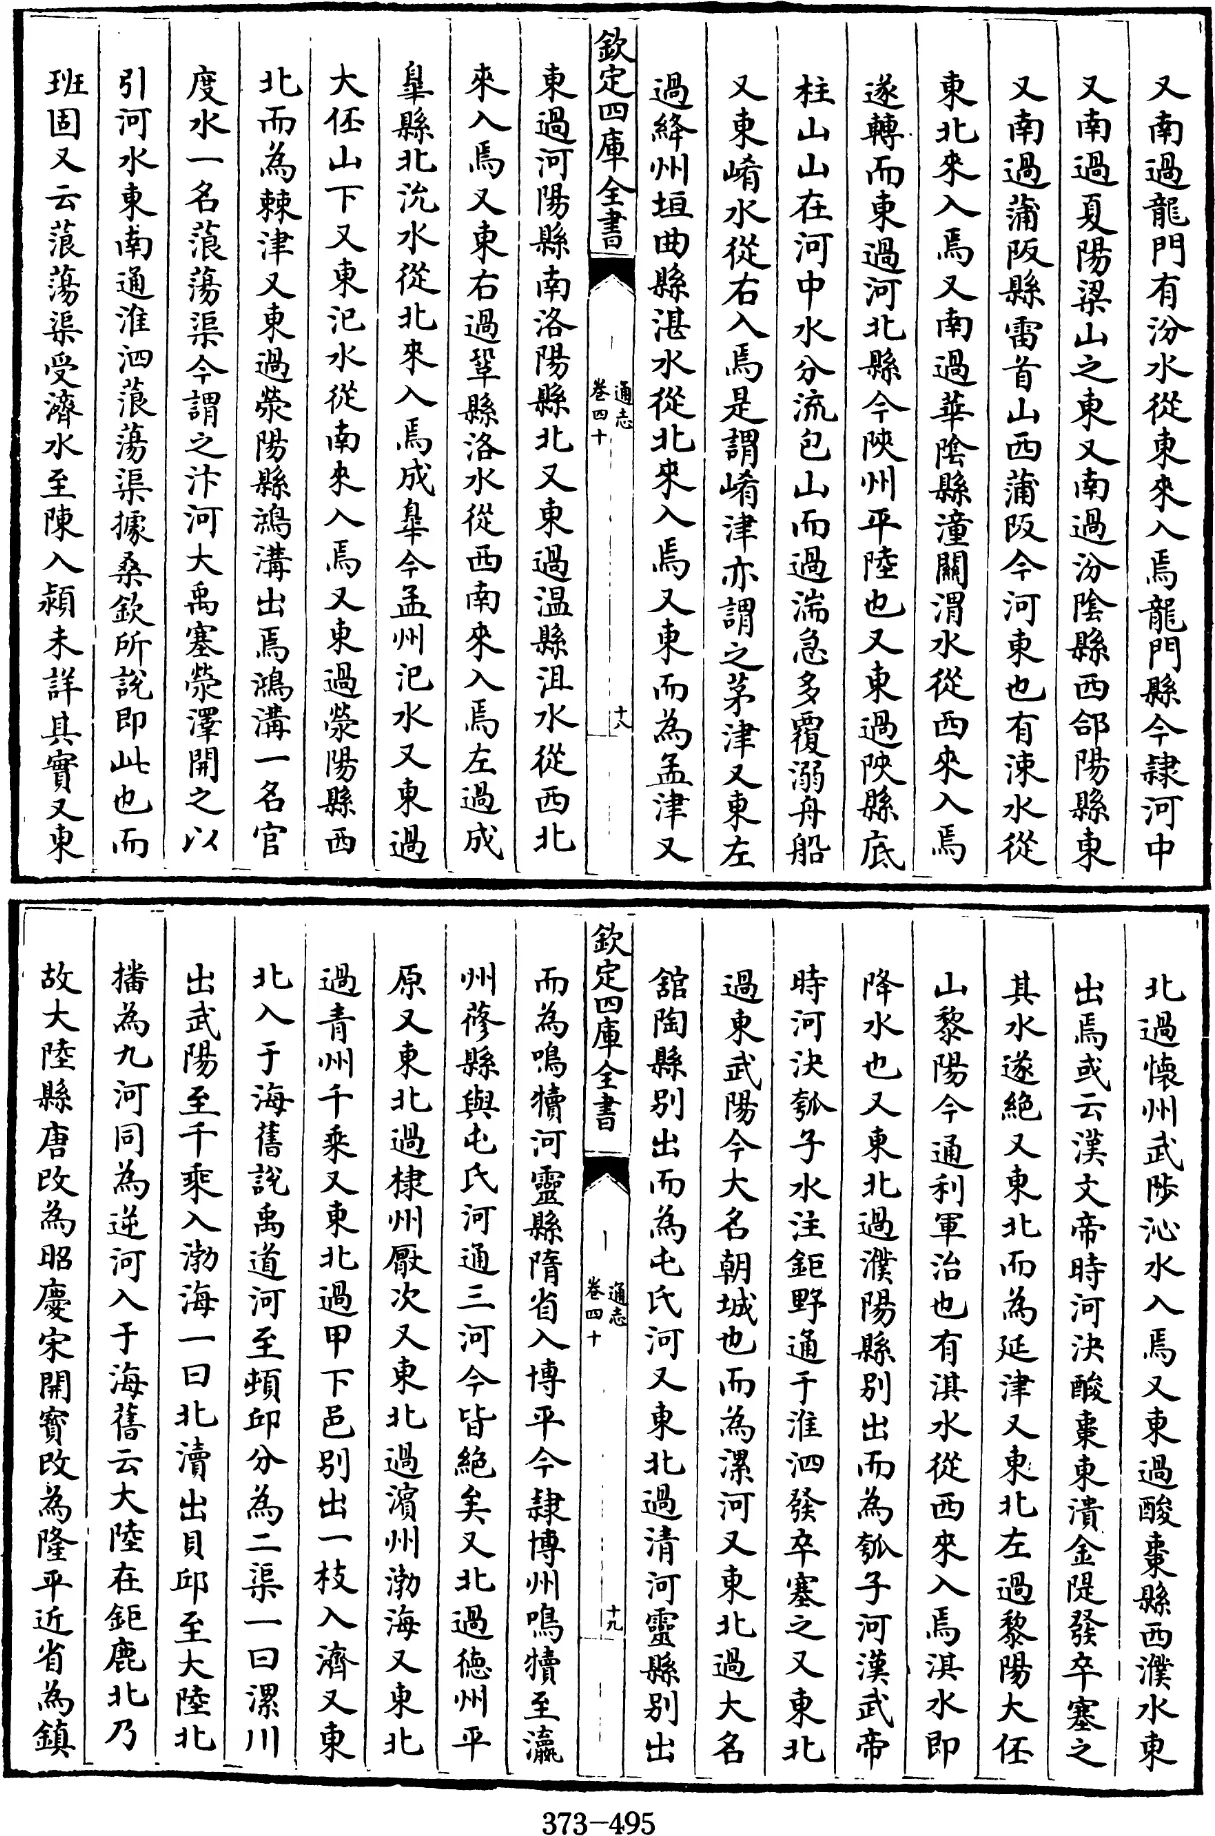 又南過龍門有汾水從東來入焉龍門縣今隷河中
又南過夏陽梁山之東又南過汾陰縣西郃陽縣東
又南過蒲阪縣雷首山西蒲阪今河東也有涑水從
東北來入焉又南過華陰縣潼關渭水從西來入焉
遂轉而東過河北縣今陜州平陸也又東過陜縣底
柱山山在河中水分流包山而過湍急多覆溺舟船
又東崤水從右入焉是謂崤津亦謂之茅津又東左
過絳州垣曲縣湛水從北來入焉又東而為孟津又
欽定四庫全書
通志
卷四十
十八
東過河陽縣南洛陽縣北又東過温縣沮水從西北
來入焉又東右過鞏縣洛水從西南來入焉左過成
臯縣北沇水從北來入焉成臯今孟州汜水又東過
大伾山下又東汜水從南來入焉又東過滎陽縣西
北而為棘津又東過滎陽縣鴻溝出焉鴻溝一名官
度水一名蒗蕩渠今謂之汴河大禹塞滎澤開之以
引河水東南通淮泗蒗蕩渠據桑欽所説即此也而
班固又云蒗蕩渠受濟水至陳入潁未詳其實又東
北過懷州武陟沁水入焉又東過酸棗縣西濮水東
出焉或云漢文帝時河決酸棗東潰金隄發卒塞之
其水遂絶又東北而為延津又東北左過黎陽大伾
山黎陽今通利軍治也有淇水從西來入焉淇水即
降水也又東北過濮陽縣別出而為瓠子河漢武帝
時河決瓠子水注鉅野通于淮泗發卒塞之又東北
過東武陽今大名朝城也而為漯河又東北過大名
舘陶縣別出而為屯氏河又東北過清河靈縣別出
欽定四庫全書
通志
卷四十
十九
而為鳴犢河靈縣隋省入博平今隷博州鳴犢至瀛
州蓚縣與屯氏河通三河今皆絶矣又北過徳州平
原又東北過棣州厭次又東北過濱州渤海又東北
過青州千乘又東北過甲下邑別出一枝入濟又東
北入于海舊説禹道河至頓邱分為二渠一曰漯川
出武陽至千乘入渤海一曰北瀆出貝邱至大陸北
播為九河同為逆河入于海舊云大陸在鉅鹿北乃
故大陸縣唐改為昭慶宋開寶改為隆平近省為鎮
373-495